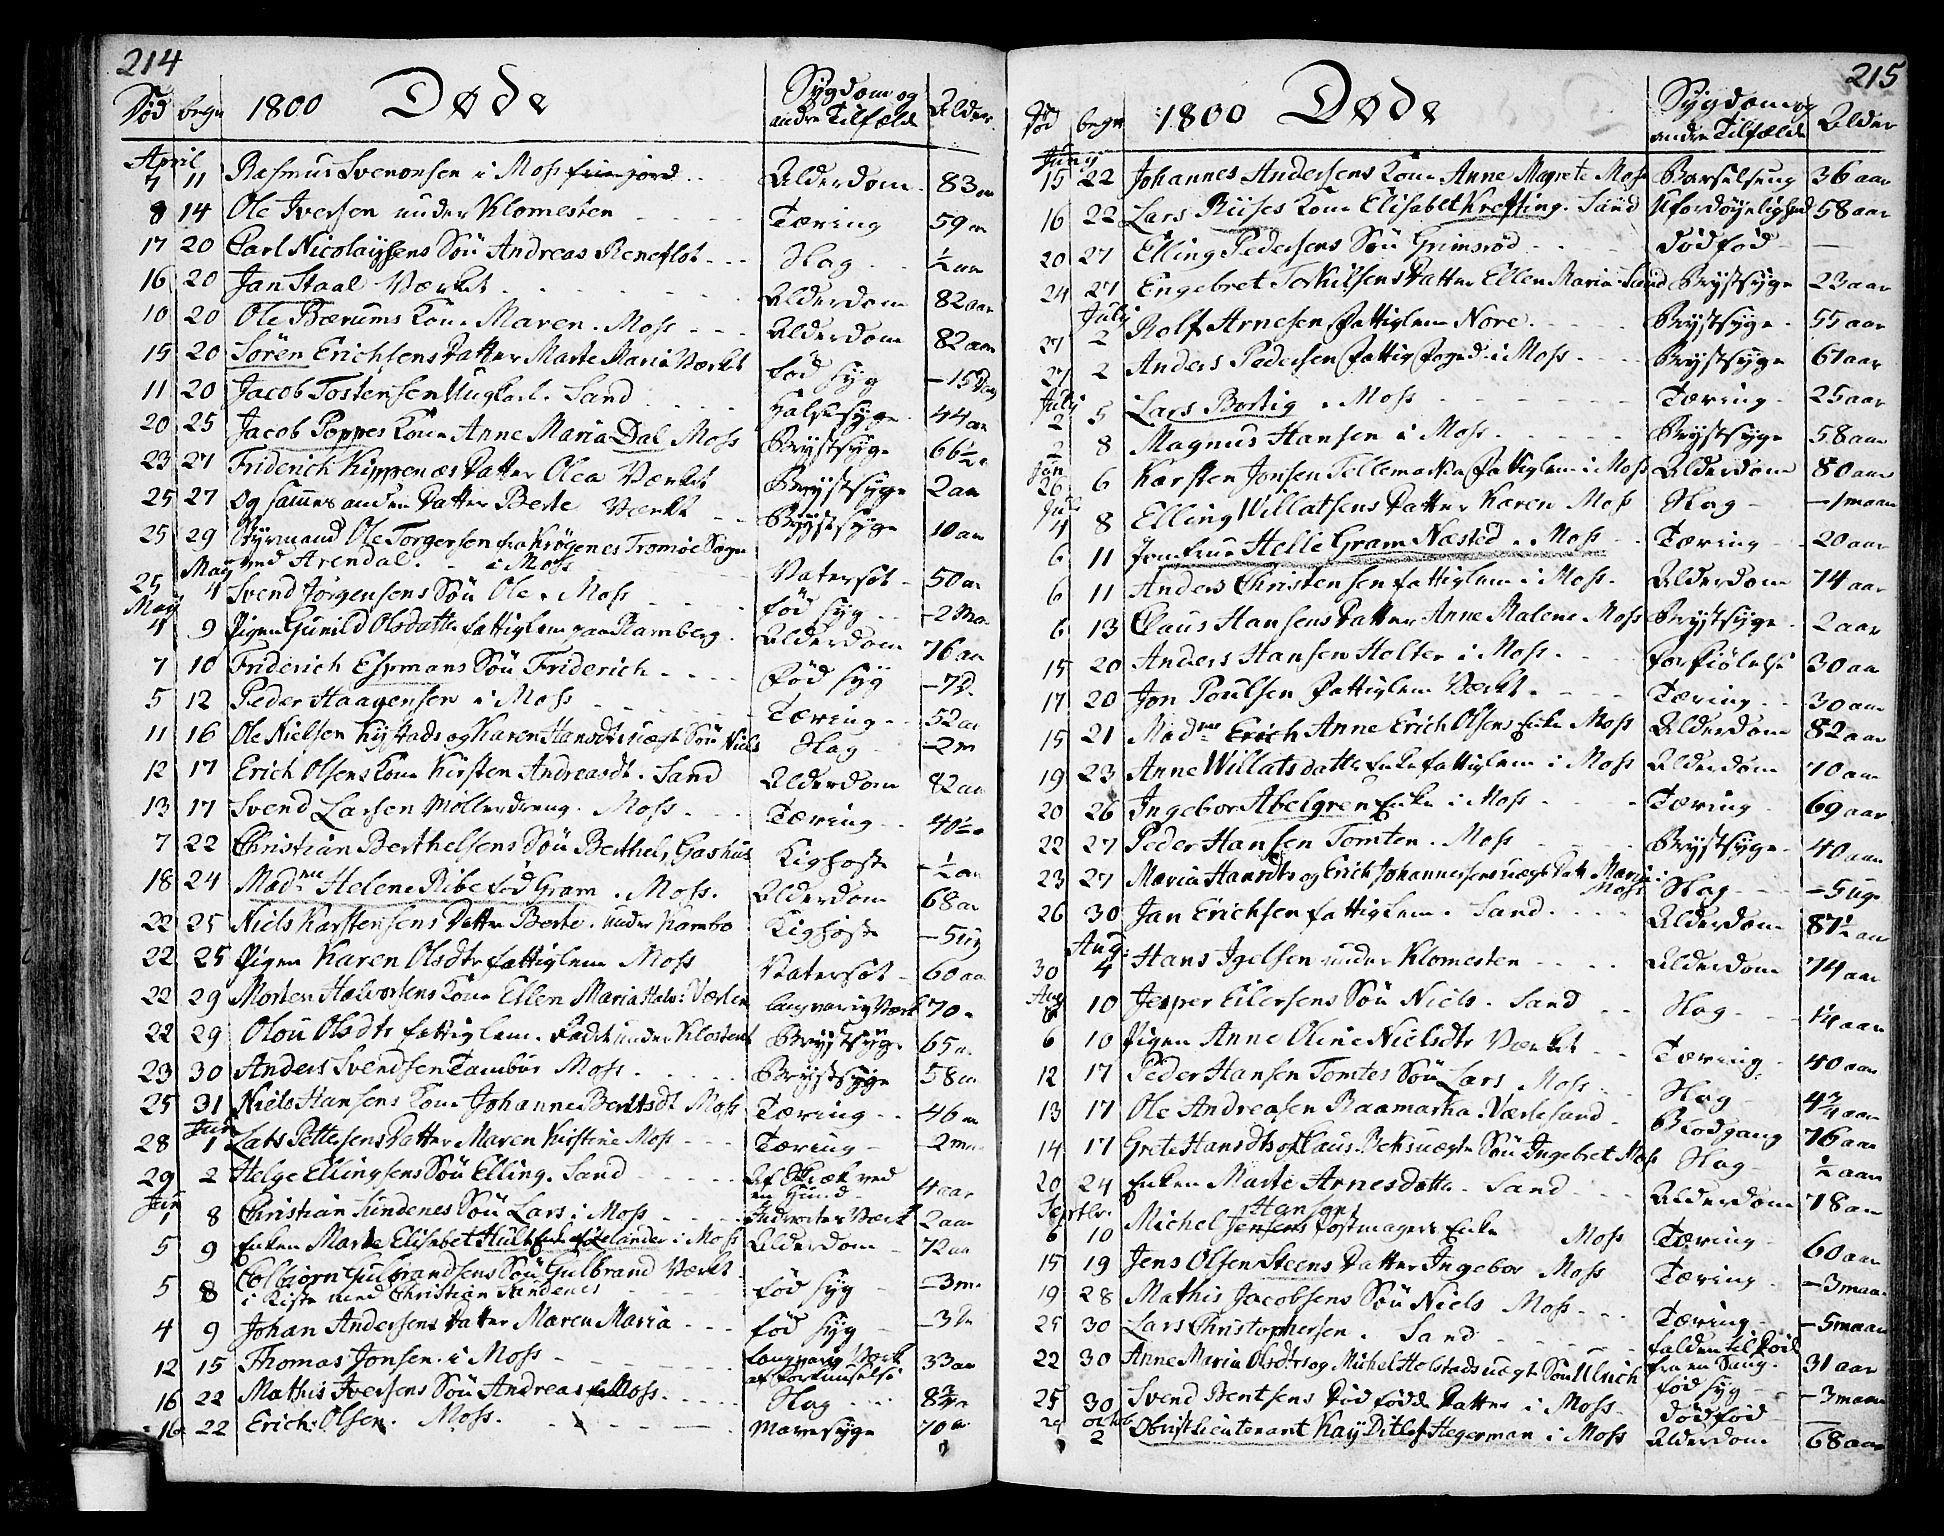 214
Død begr 1800 Døde Sygdom og andre Tilfælde Alder
April
7 11 Rasmus Svenonsen i Moss Alderdom 83 aar
8 14 Ole Iversen under Klomesten Tæring 59 aar
17 20 Carl Nicolaysens Søn Andreas Reneflot Slag ½ aar
16 20 Jan Staal Værket Alderdom 82 aar
10 20 Ole Bærums Kone Maren. Moss Alderdom 82 aar
15 20 Søren Erichsens Datter Marte Maria Værket fød syg 15 Dag
11 20 Jacob Tostensen Ungkarl. Sand Halssyge 44 aar
20 25 Jacob Poppes Kone Anne Maria Dal Moss Brystsyge 66½
23 27 Friderich Kippenæs Datter Olea Værket Brystsyge 2 aar
25 27 og sammes anden Datter Berte Værket Brystsyge 10 aar
25 29 Styrmand Ole Torgersen fra Krøgenes Tromøe Sogn
ved Arendal. i Moss Vatersot 50 aar
May
25 4 Svend Jørgensens Søn Ole. Moss fød syg 2 Ma.
May
4 9 Pigen Gunild Olsdatter fattiglem paa Ramberg Alderdom 76 aar
7 10 Friderich Essmans Søn Friderich Fød syg 7 D.
5 12 Peder Haagensen i Moss Tæring 52 aar
11 16 Ole Nielsen Kystads og Karen Hansdtrs uægt Søn Niels Slag 2 m
12 17 Erich Olsens Kone Kirsten Andreasdt. Sand Alderdom 82 aar
13 17 Svend Larsen Møllerdreng. Moss Tæring 40½
7 22 Christian Berthelsens Søn Berthel, Gashus Kighoste ½ aar
18 24 Madme Helene Ribe fød Gram. Moss. Alderdom 68 aar
22 25 Niels Karstensens Datter Berte. under Kambo Kighoste 5 ug
22 25 Pigen Karen Olsdtr fattiglem Moss Vatersot 60 aar
22 29 Morten Halvorsens Kone Ellen Maria Halv: Værlen langvarig Værk 70
22 29 Olou Olsdtr fattiglem. Født under Klosteret Brystsyge 65
23 30 Anders Svendsen Tambur Moss. Brystsyge 58
25 31 Niels Hansens Kone Johanne Berntsdt Moss Tæring 46 aar
Jun
28 1 Lars Pettersens Datter Maren Kirstine Moss Tæring 2 m
29 2 Helge Ellingsens Søn Elling. Sand Af Skræk ved en Hund 4 aar
Jun
1 8 Christian Sundenes Søn Lars i Moss Indvortes Værk 2 aar
5 9 Enken Marte Elisabet Hult i Moss Alderdom 72 aar
5 8 Colbiørn Gulbrandsens Søn Gulbrand Værket
i Kiste med Christian Sandenes fød syg 3 m.
4 9 Johan Andersens Datter Maren Maria fød syg 3 D
12 15 Thomas Jonsen. i Moss langvarig Værk af Forkiølelse 33 aar
16 22 Mathis Iversens Søn Andreas Moss. Slag 8
16 22 Erich Olsen. Moss. Mavesyge 70
215
Død begr 1800 Døde Sygdom og andre Tilfælde Alder
Juny
15 22 Johannes Andersens Kone Anne Magrete Moss Barselseng 36 aar
16 22 Lars Riises Kone Elisabet Krefting. Sand Ufordøyelighed 58 aar
20 27 Elling Pedersens Søn Grimsrød dødfød —
24 27 Engebret Torkilsens Datter Ellen Maria Sand Brystsyge 23 aar
July
27 2 Rolf Arnesen Fattiglem Nore. Brystsyge 55 aar
27 2 Anders Pedersen Fattig Foged i Moss Brystsyge 67 aar
July
2 5 Lars Bortig. Moss Tæring 25 aar
2 8 Magnus Hansen i Moss Brystsyge 58 aar
Jun
26 6 Karsten Jonsen Tellemarken Fattiglem i Moss Alderdom 80 aar
Jul
4 8 Elling Willatsens Datter Karen Moss Slag 1 maan
6 11 Jomfrue Helle Gram Næsted. Moss Tæring 20 aar
6 11 Anders Christensen fattiglem i Moss. Alderdom 74 aar
6 13 Claus Hansens Datter Anne Malene Moss Brystsyge 2 aar
15 20 Anders Hansen Holter i Moss. Forkiølelse 30 aar
17 20 Jon Poulsen Fattiglem Værket Tæring 30 aar
15 21 Madme Erich Anne Erich Olsens Enke Moss Alderdom 82 aar
19 23 Anne Willatsdatter Enke fattiglem i Moss Alderdom 70 aar
20 26 Ingebor Abelgren Enke i Moss Tæring 69 aar
22 27 Peder Hansen Tomten. Moss Brystsyge 40 aar
23 27 Maria Hansdtrs og Erich Johannessens uægt Datt Maria Moss Slag 5 uge
26 30 Jan Erichsen fattiglem. Sand. Alderdom 87½ aar
Aug:
30 4 Hans Igelsen under Klomesten Alderdom 74 aar
Aug
6 10 Jesper Eilersens Søn Niels. Sand Slag ¼ aar
6 10 Pigen Anne Oline Nielsdtr Værket Tæring 40 aar
12 17 Peder Hansen Tomtes Søn Lars Moss Slag 4¾ aar
13 17 Ole Andreasen Raamarka. Værlesand Blodgang 76 aar
14 17 Grete Hansdtrs og Claus Beks uægte Søn Ingebret Moss Slag ½ aar
20 24 Enken Marte Arnesdatter. Sand Alderdom 78 aar
Septbr.
Hansens
6 10 Michel Jensens Postmagers Enke Moss Tæring 60 aar
15 19 Jens Olsen Steens Datter Ingebor Moss Tæring 3 maan
19 28 Mathis Jacobsens Søn Niels Moss Tæring 5 maan
25 30 Lars Christophersen. Sand falden til Død fra en Vang 31 aar
22 30 Anne Maria Olsdtrs og Michel Holstads uægt Søn Ulrich fød syg 3 maan
25 30 Svend Bentsens Død fødde Datter i Moss dødfød —
Octob
29 2 Obristlieutenant Kay Ditlef Hegerman i Moss Alderdom 68 aar